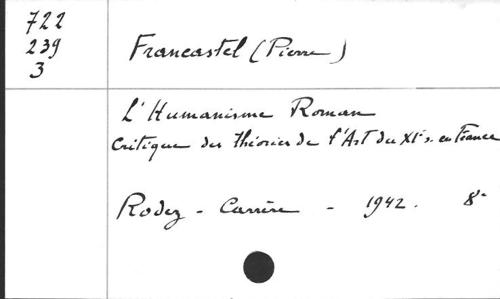 722
239
3
Francastel (Pierre)
L'Humanisme Roman
Critique des théories de l'Art du XIe s. en France
Rodez - Carrère - 1942. 8°